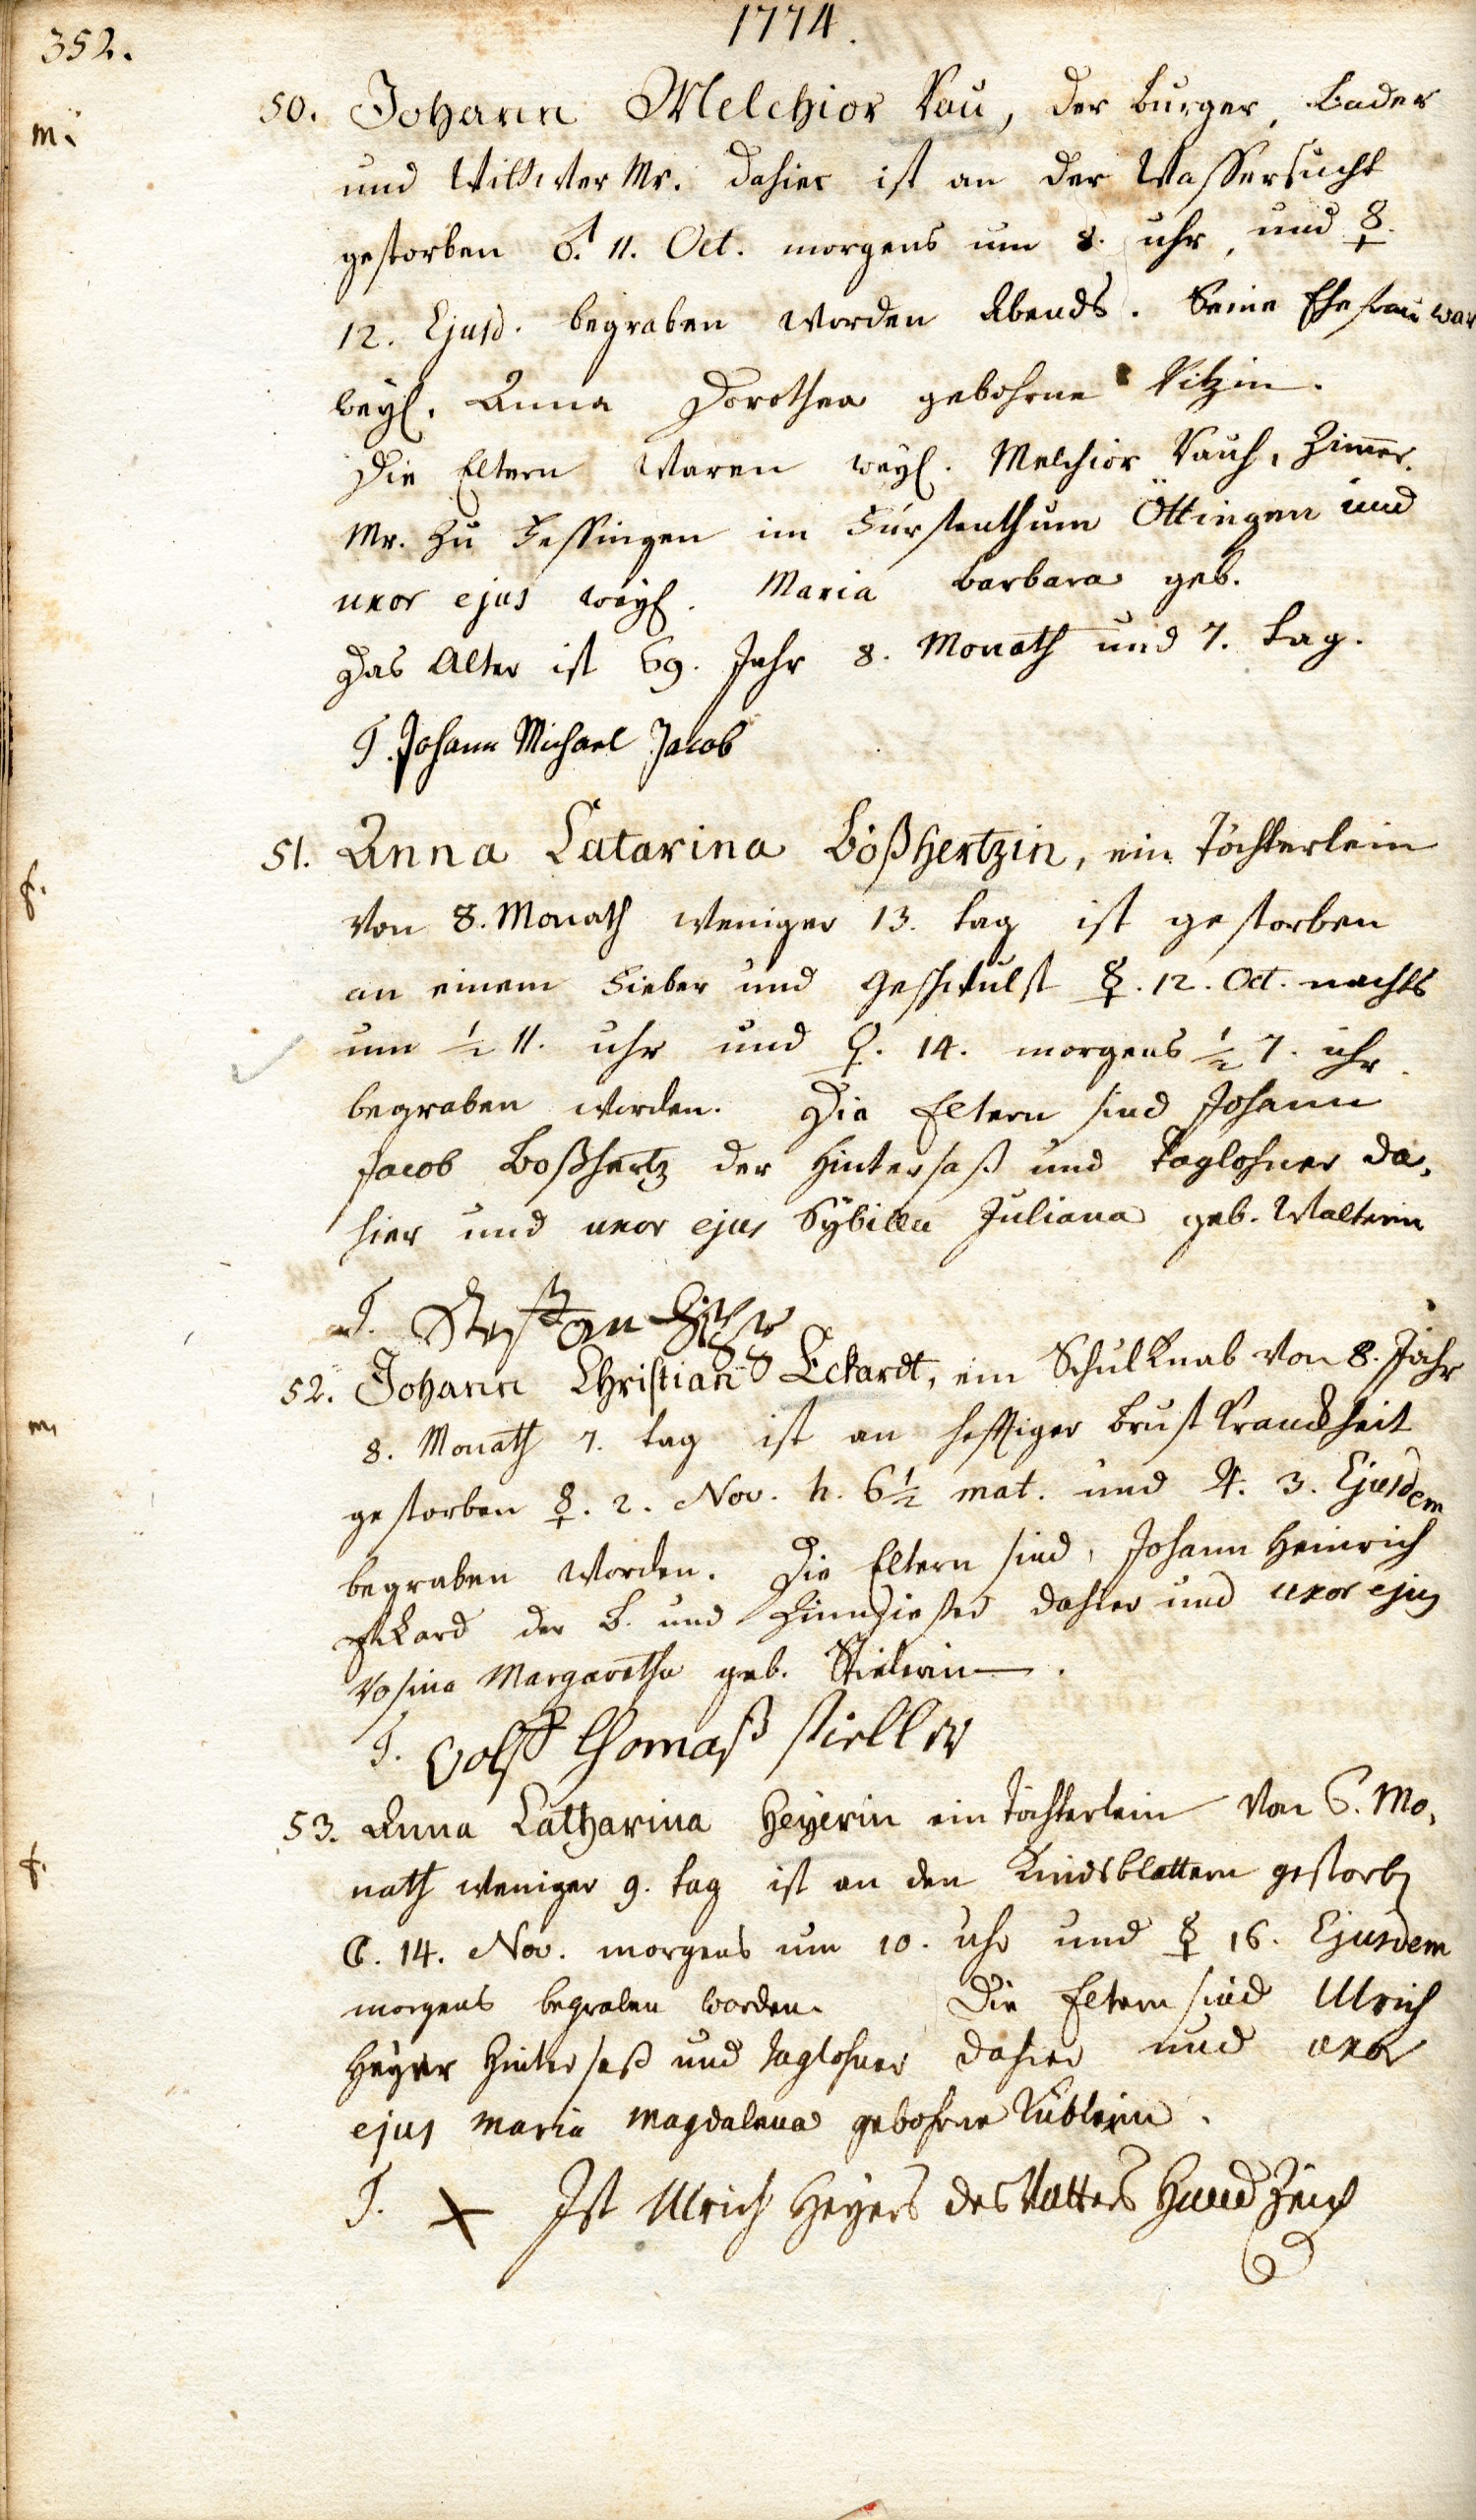 352.
1774.
m.
50. Johann Melchior Rau, der burger, Bader
und Wittwer Mr. dahier ist an der Wassersucht
gestorben ♂. 11. Oct. morgens um 8. uhr, und ☿.
12. Ejusd. begraben worden Abends. Seine Ehefrau war
weyl. Anna Dorothea gebohrne Ritzin.
Die Eltern waren weyl. Melchior Rauh, Zimmer.
Mr. zu Fessingen im Fürstenthum Öttingen und
uxor ejus weyl. Maria Barbara geb.
Das Alter ist 69. Jahr 8. Monath und 7. tag.
T. Johann Michael Jacob
f.
51. Anna Catarina Boßhertzin, ein Töchterlein
von 8. Monath weniger 13. tag ist gestorben
an einem Fieber und Geschwulst ☿. 12. Oct. nachts
um ½ 11. uhr und ♀. 14. morgens ½ 7. uhr
begraben worden. Die Eltern sind Johann
Jacob Boßhertz der Hintersaß und Taglohner da,
hier und uxor ejus Sybilla Juliana geb. Walterin
T.
m.
52. Johann Christian Eckardt, ein Schul Knab von 8. Jahr
8. Monath 7. tag ist an hefftiger Brust Kranckheit
gestorben ☿. 2. Nov. h. 6½ mat. und ♃. 3. Ejusdem
begraben worden. Die Eltern sind, Johann Heinrich
Eckard der B. und Zinngießer dahier und uxor ejus
Rosina Margaretha geb. Stielerin.
T. Volff Thomaß stieller
f.
53. Anna Catharina Heyerin ein Töchterlein von 6. Mo,
nath weniger 9. tag ist an den Kindsblattern gestorbn
☾. 14. Nov. morgens um 10. uhr und ☿ 16. Ejusdem
morgens begraben worden. Die Eltern sind Ulrich
Heyer Hintersaß und Taglohner dahier und uxor
ejus Maria Magdalena gebohrne Küblerin.
T. X Ist Ulrich Heyers des Vatters Hand Zeich